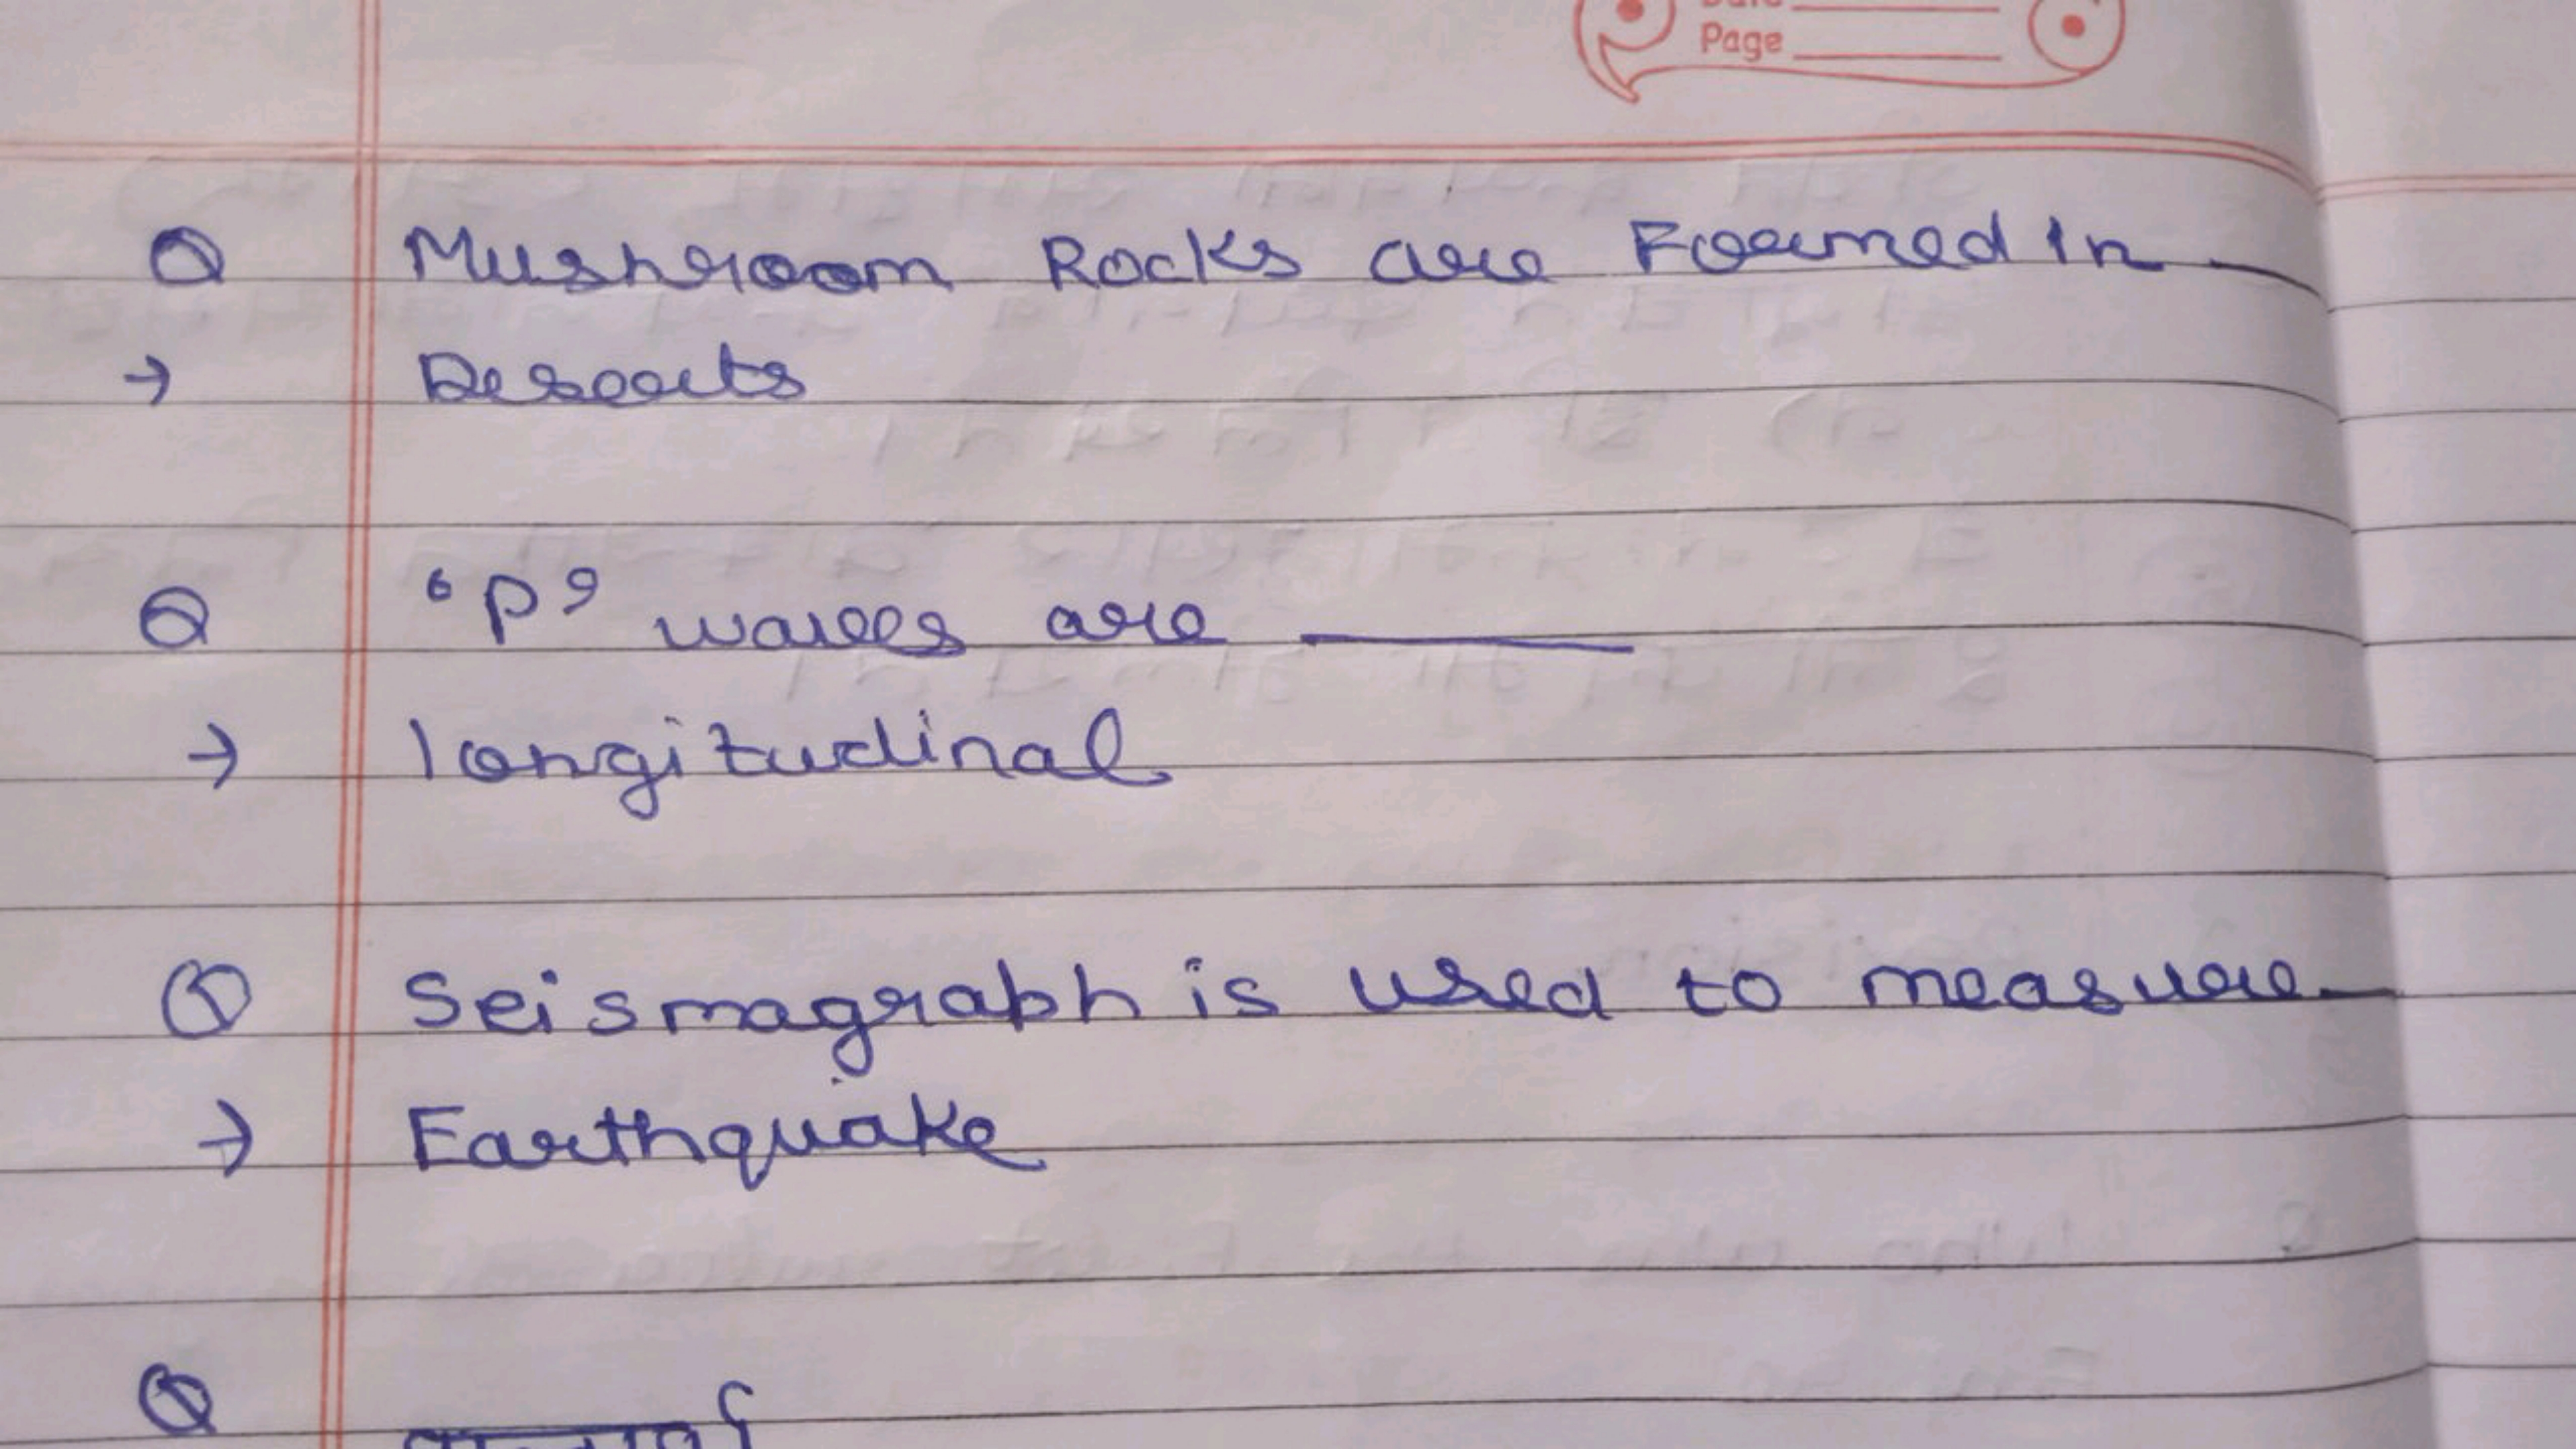 Page
Q Mushroom Rocks are Formed In
→ Deserts
Q 'P' waves are ______
→ longitudinal
Q Seismagraph is used to measure
→ Earthquake
Q